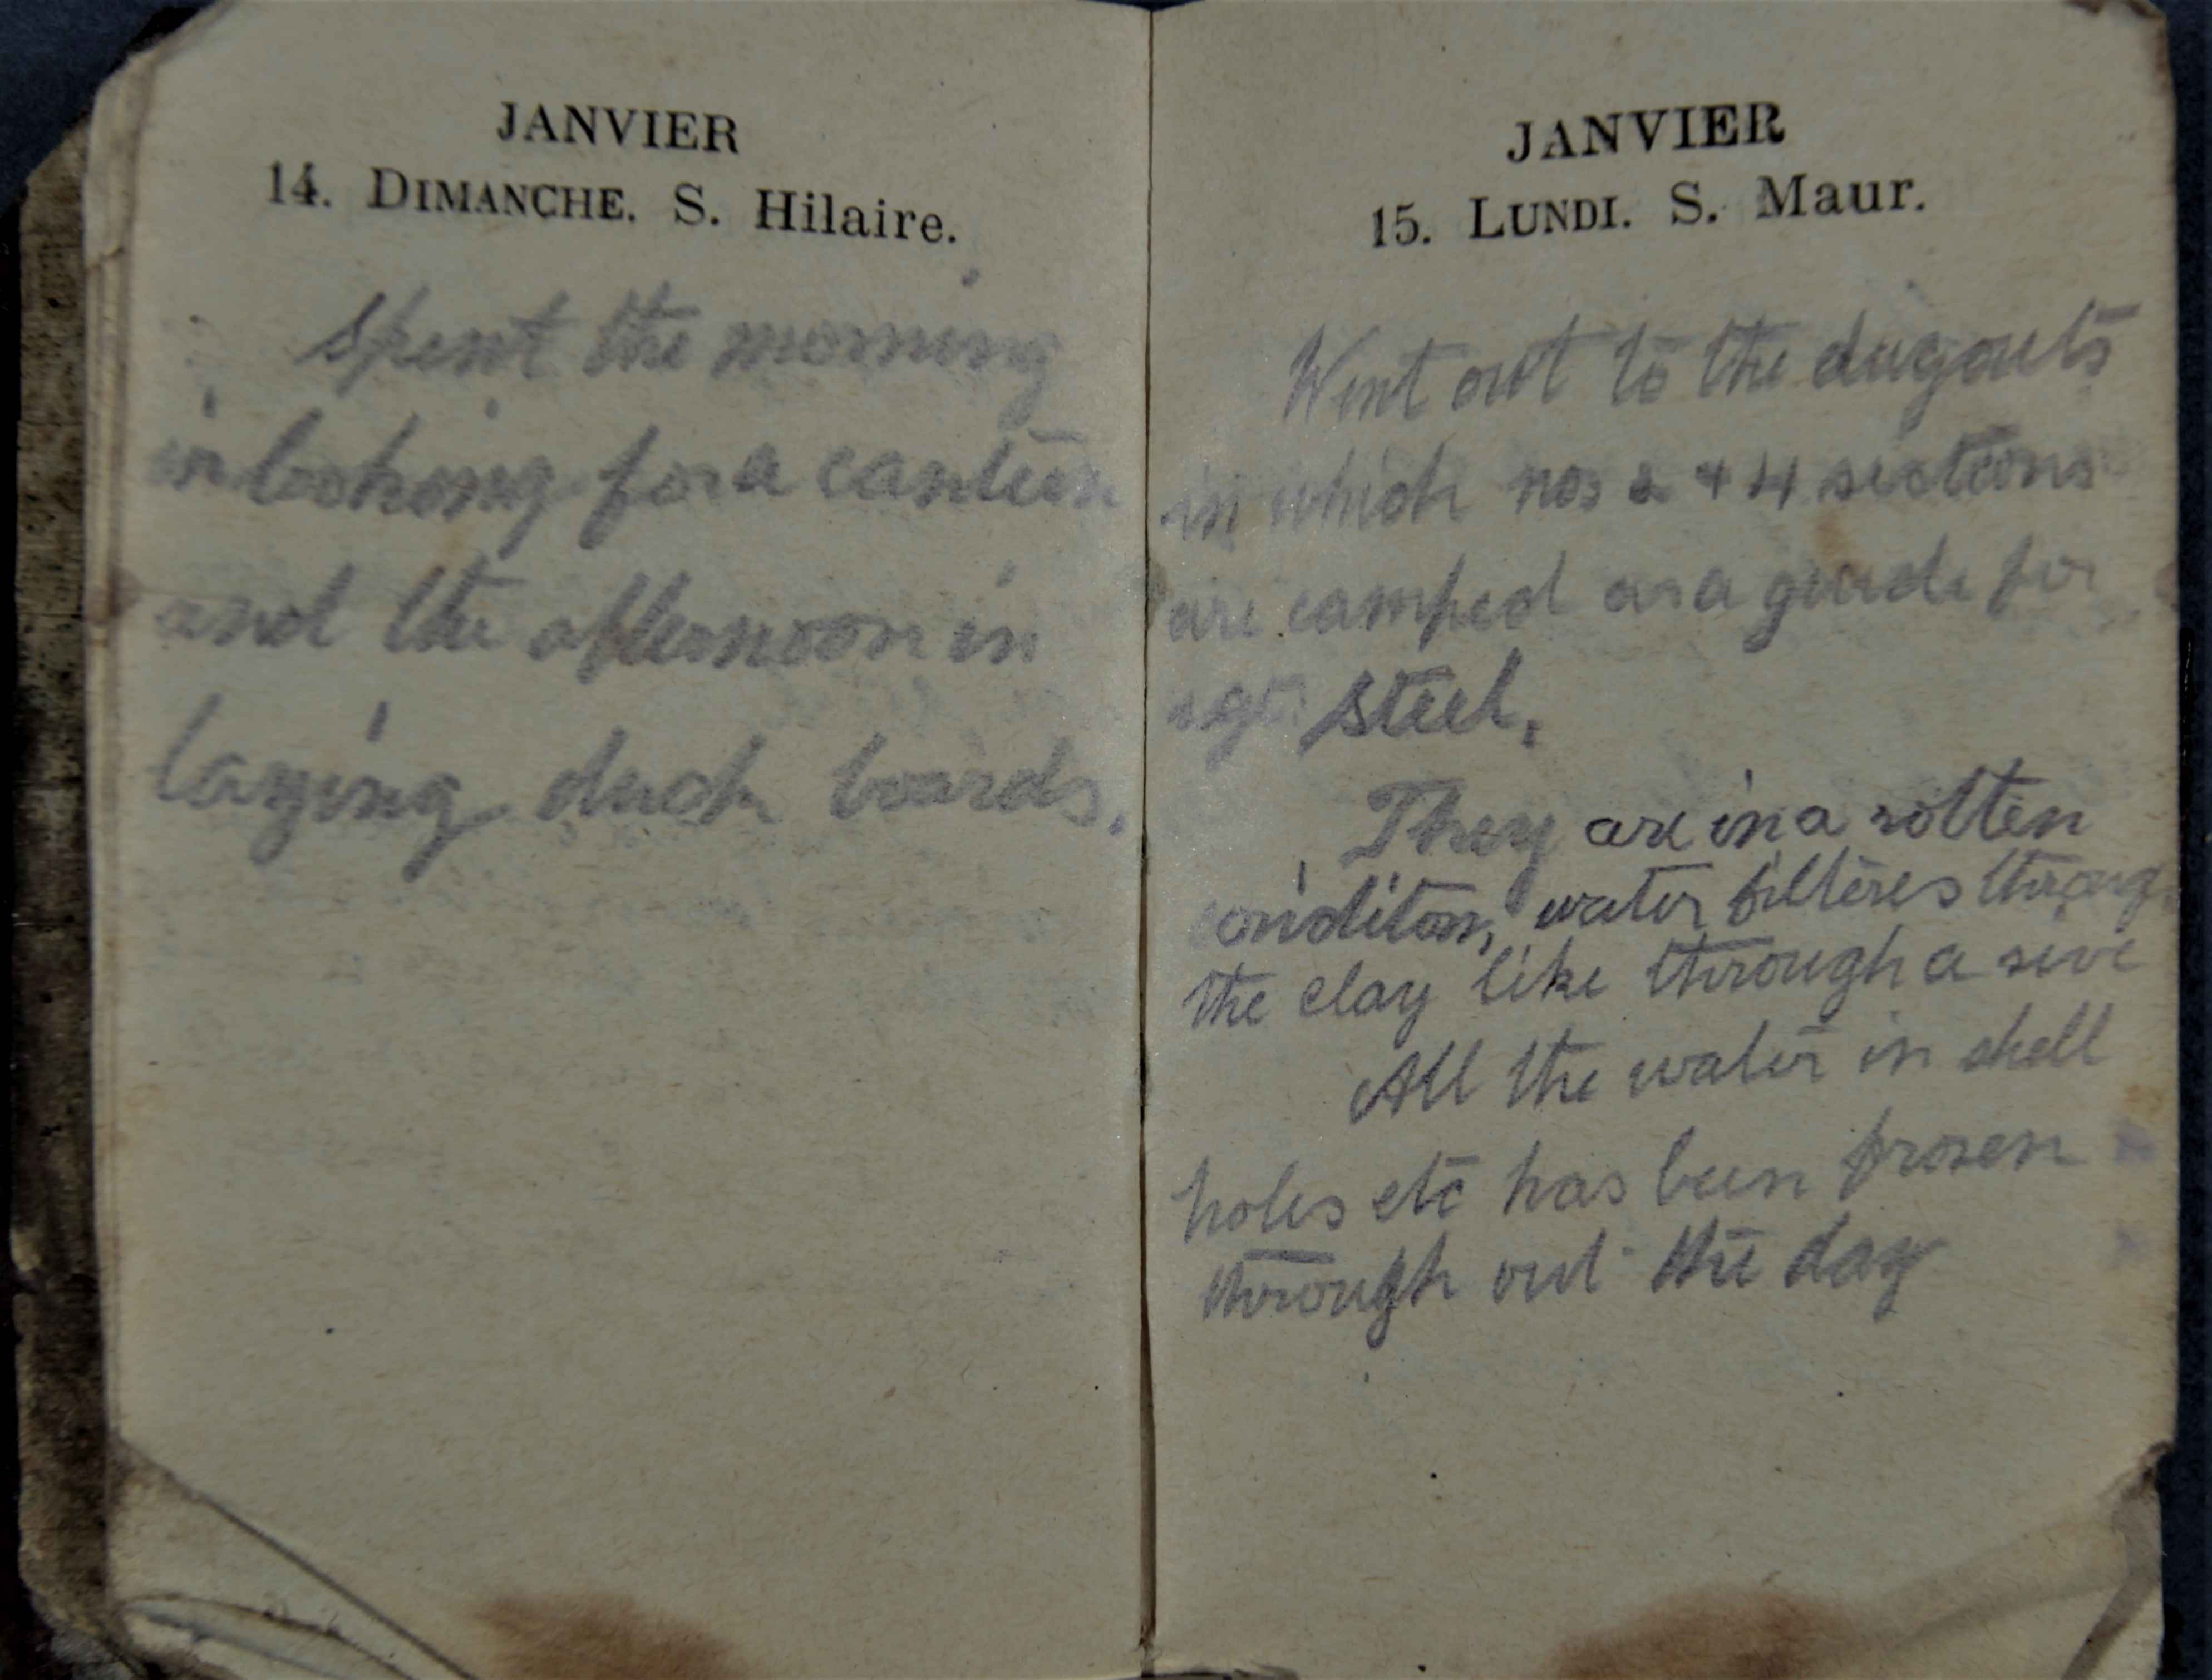 JANVIER
14. DIMANCHE. S. Hilaire.
Spent the morning
in looking for a canteen
and the afternoon in
laying duck boards.
JANVIER
15. LUNDI. S. Maur.
Went out to the dugouts
in which nos 2 + 4 sections
are camped as a guide for
sgt steel.
They are in a rotten
conditon, water filteres throug
the clay like through a sive
All the water in shell
holes etc has been frosen
through out the day